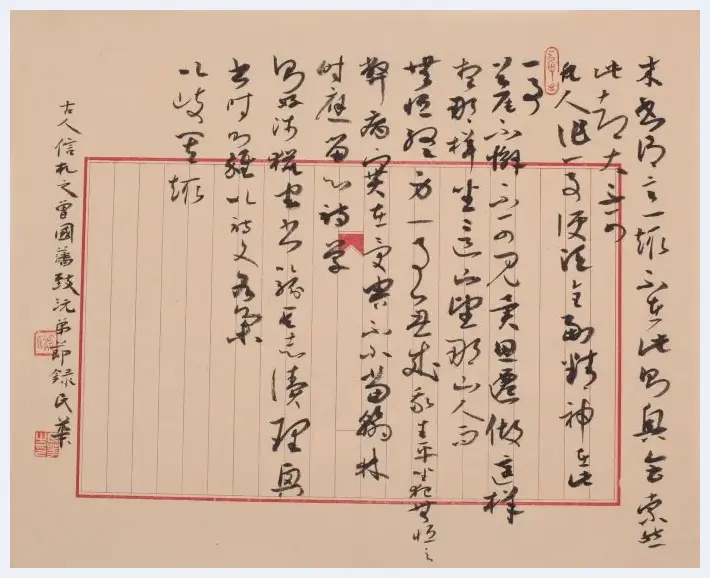 来書謂意趣不在此則興會索然
此却大不可
凡人作一事便須全副精神在此
一事
首尾不懈不可見異思遷做這樣
想那樣坐這山望那山人而
無恒終身一事無成我生平坐犯無恒之
弊病實在受害不小當翰林
時應留心詩字
則好涉獵它書以紛其志讀理
書時則雜以詩文各集
以歧其趨
古人信札之曾國藩致沅弟節錄民華